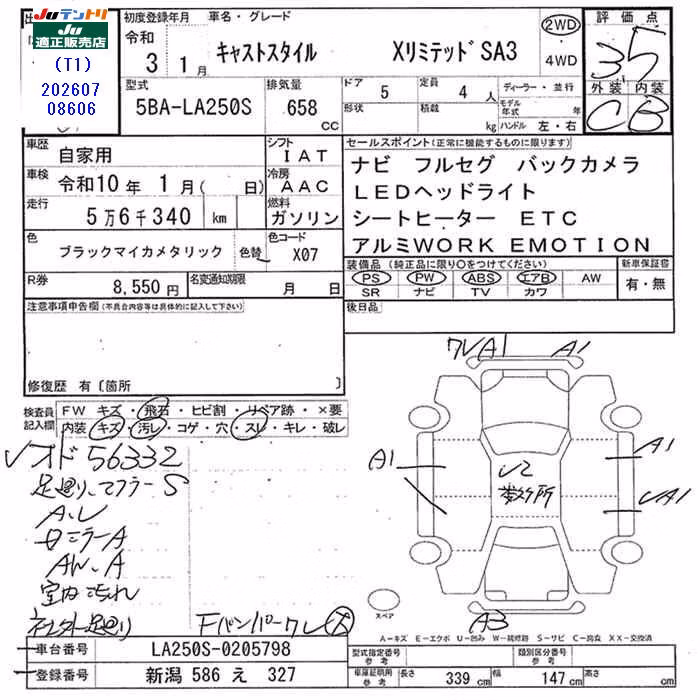 JUテントリ
JU適正販売店
(T1)
202607
08606
初度登録年月 車名・グレード
令和 3年 1月 キャストスタイル XリミテッドSA3 2WD・4WD
評価点
3.5
外装 内装
C B
型式 5BA-LA250S
排気量 658 CC
ドア 5
形状
定員 4人
積載 kg
ディーラー・並行
モデル年式 年式
ハンドル 左・右
車歴 自家用
シフト IAT
車検 令和10年 1月( 日)
冷房 AAC
走行 5万6千340 km
燃料 ガソリン
色 ブラックマイカメタリック 色替
色コード X07
R券 8,550円
名変通知期限 月 日
セールスポイント(正常に機能するものに限ります)
ナビ フルセグ バックカメラ
LEDヘッドライト
シートヒーター ETC
アルミWORK EMOTION
装備品(純正品に限り○をつけてください)
PS PW ABS エアB AW
SR ナビ TV カワ
新車保証書
有・無
注意事項申告欄(不具合内容等は具体的に記入して下さい)
後日品
修復歴 有〔箇所 〕
検査員記入欄
FW キズ・飛石・ヒビ割・リペア跡・×要
内装 キズ・汚レ・コゲ・穴・スレ・キレ・破レ
レオド 56332
足廻り、マフラーS
A、レ
ロミラーA
AW、A
室内汚れ
社外足廻り
Fバンパーワレ
ワレA1
A1
A1
A1
レA1
レ2
数ヶ所
A3
スペア
A-キズ E-エクボ U-凹み W-補修跡 S-サビ C-腐食 XX-交換済
車台番号 LA250S-0205798
登録番号 新潟 586 え 327
型式指定番号 参考
類別区分番号 参考
車庫証明用 参考
長さ 339cm 幅 147cm 高さ cm